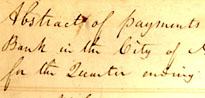 Abstract of payments
Bank in the City of
for the Quarter ending